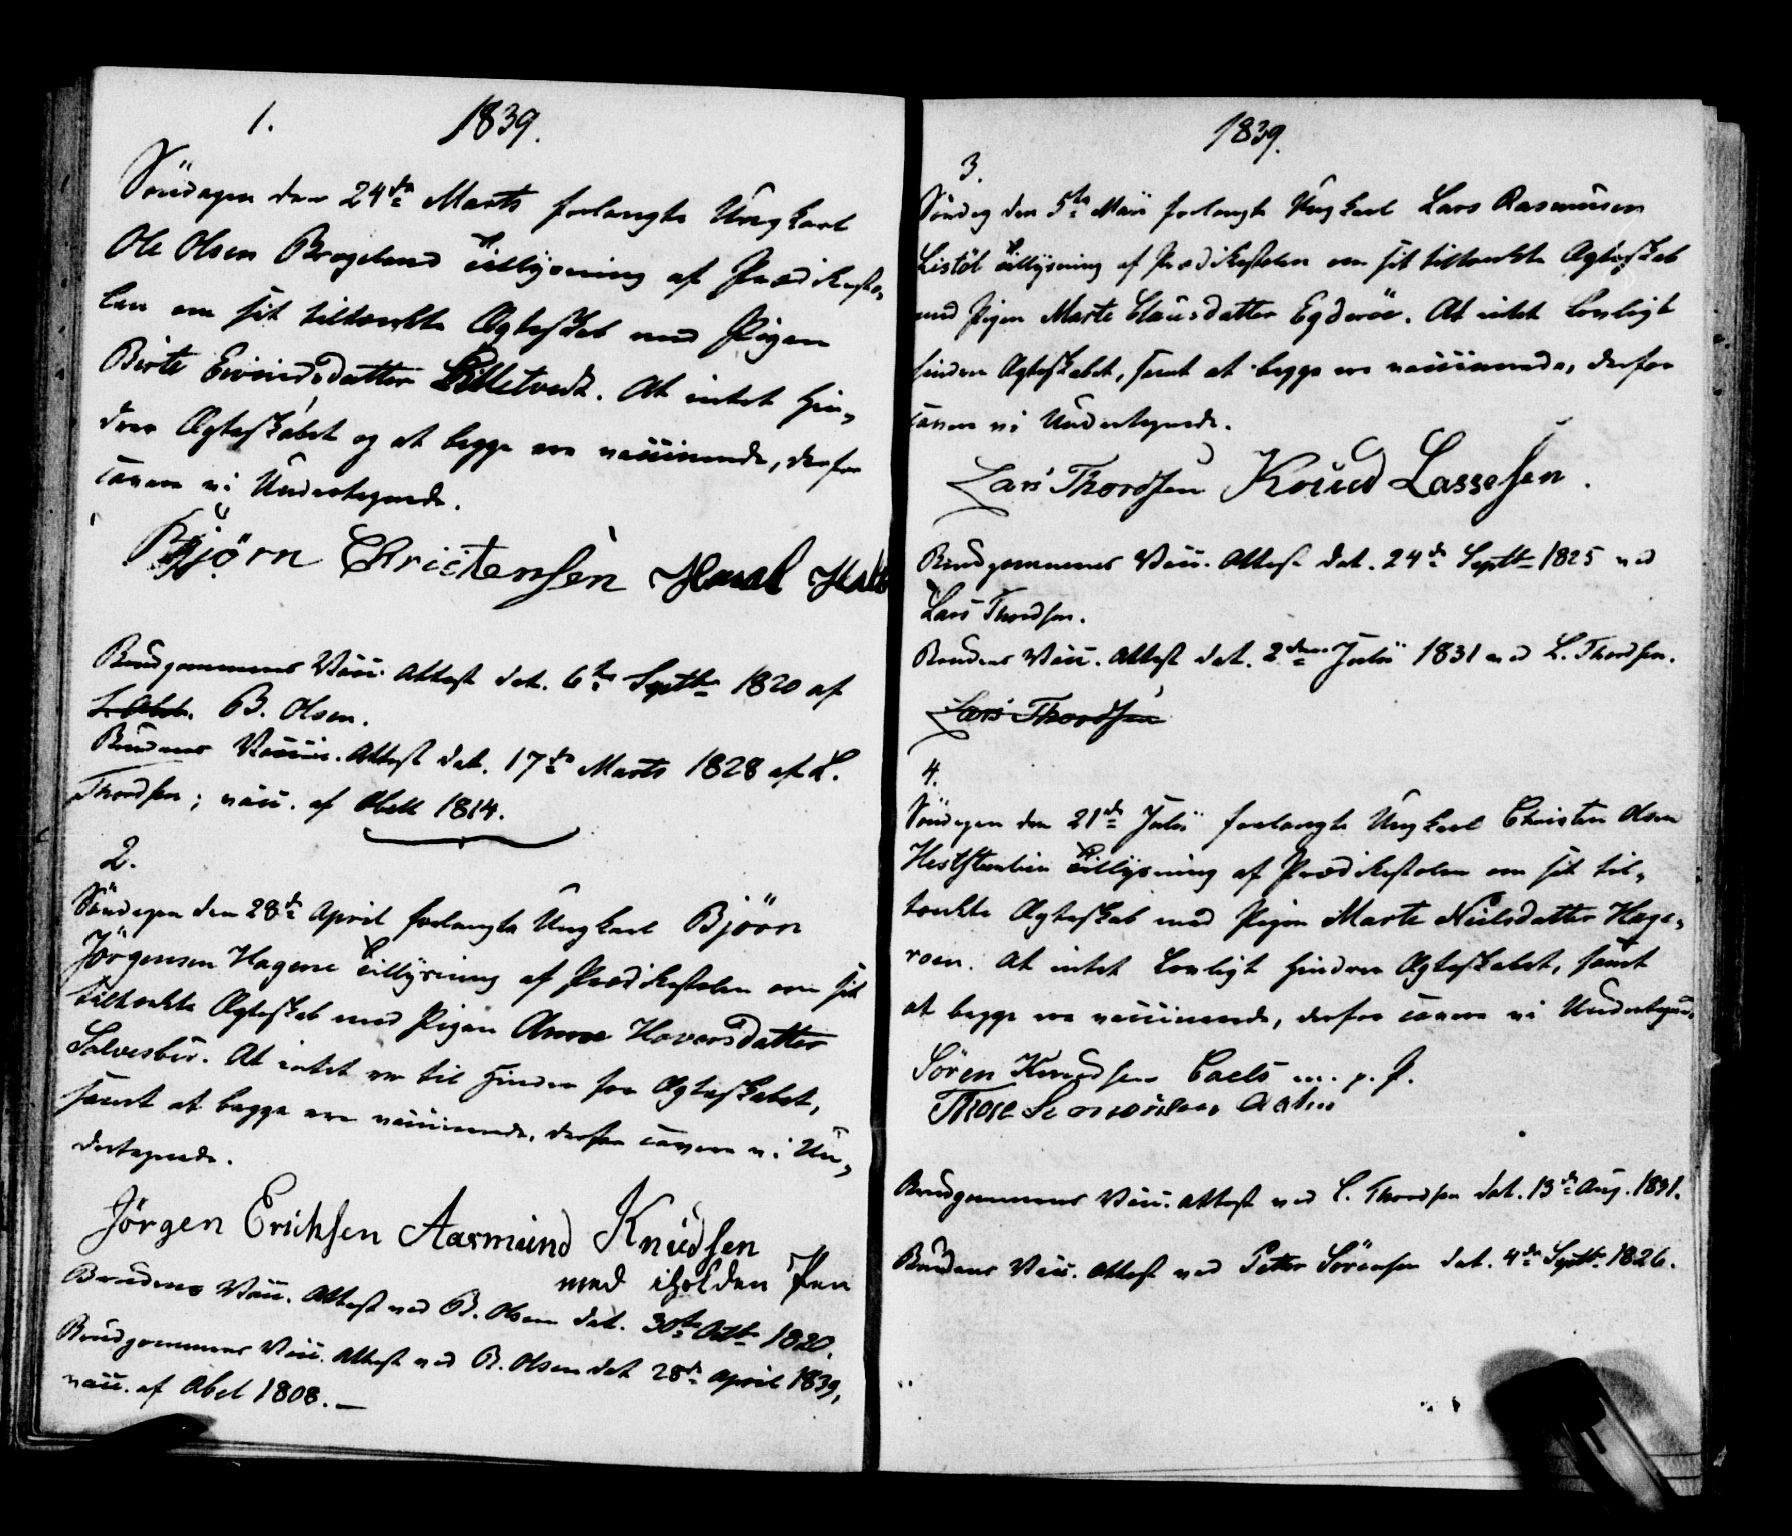 1. 1839.
Söndagen den 24de Marts forlangte Ungkarl
Ole Olsen Brogeland Tillysning af Prædikesto-
len om sit tiltænkte Ægteskab med Pigen
Birte Eivindsdatter Lilletvedt. At intet hin-
drer Ægteskabet og at begge ere vaccinerede, derfor
cavere vi Undertegnede.
Bjørn Christensen
Brudgommens Vacc. Attest dat. 6te Septbr 1820 af
B. Olsen.
Brudens Vaccin. Attest dat. 17de Marts 1828 af L.
Thordsen; vacc. af Abell 1814.
2.
Söndagen den 28de April forlangte Ungkarl Björn
Jörgensen Hagene Tillysning af Prædikestolen om sit
tiltænkte Ægteskab med Pigen Anne Haversdatter
Salvesbu. At intet er til Hinder for Ægteskabet,
samt at begge ere vaccinerede, derfor cavere vi Un-
dertegnede.
Jörgen Erichsen Aasmund Knudsen
med iholden Pen
Brudens Vacc. Attest ved B. Olsen dat. 30te Octbr 1820.
Brudgommens Vacc. Attest ved B. Olsen dat 28de April 1839,
vacc. af Abel 1808. —
1839.
3.
Söndag den 5te Mai forlangte Ungkarl Lars Rasmusen
Listöl Tillysning af Prædikestolen om sit tiltænkte Ægteskab
med Pigen Marte Clausdatter Egderöe. At intet lovligt
hindrer Ægteskabet, samt at begge ere vaccinerede, derfor
cavere vi Undertegnede.
Lars Thordsen Knud Lassesen.
Brudgommens Vacc. Attest dat. 24de Septbr 1825 ved
Lars Thordsen.
Brudens Vacc. Attest dat. 2den Juli 1831 ved L. Thordsen.
Lars Thordsen
4.
Söndagen den 21de Juli forlangte Ungkarl Christen Olsen
Tillysning af Prædikestolen om sit til-
tænkte Ægteskab med Pigen Marte Nielsdatter Hage-
roen. At intet lovligt hindrer Ægteskabet, samt
at begge ere vaccinerede, derfor cavere vi Undertegnede
Sören Knudsen m. p. P.
Brudgommens Vacc. Attest ved L. Thordsen dat. 13de Aug. 1831.
Brudens Vacc. Attest ved Petter Sörensen dat. 4de Septbr 1826.